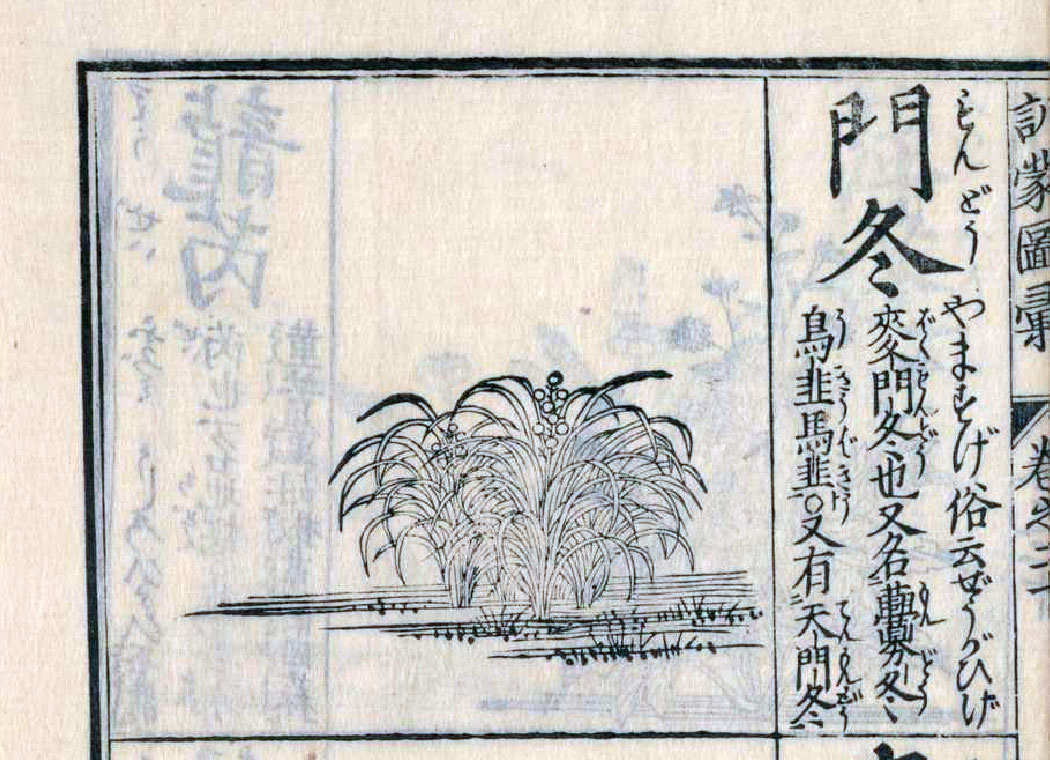 訓蒙圖彙
卷之二十
もんどう やますげ 俗云ぜうがひげ
門冬
麥門冬也又名虋冬
烏韭馬韭○又有天門冬
ばくもんどう
もんどう
うきう ばきう
てんもんどう